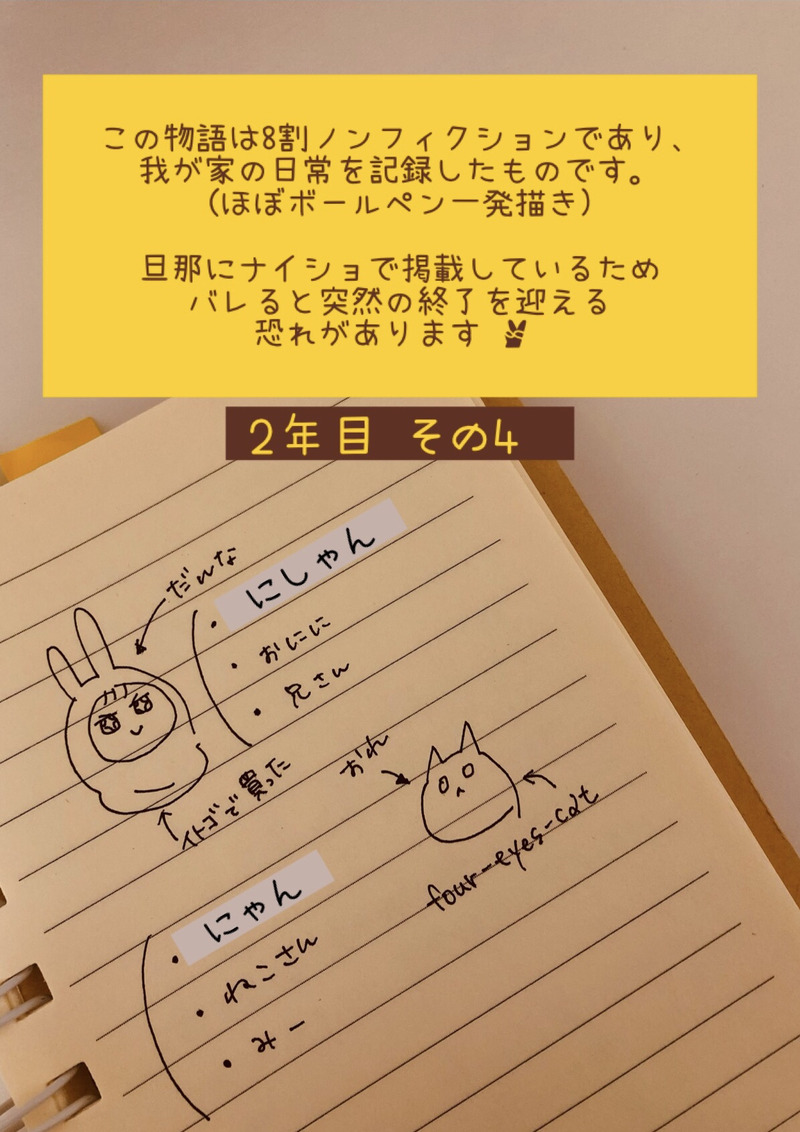 この物語は8割ノンフィクションであり、
我が家の日常を記録したものです。
(ほぼボールペン一発描き)
旦那にナイショで掲載しているため
バレると突然の終了を迎える
恐れがあります ✌
2年目 その4
だんな
・にしゃん
・おにに
・兄さん
イトゴで買った
おれ
four-eyes-cat
・にゃん
・ねこさん
・みー